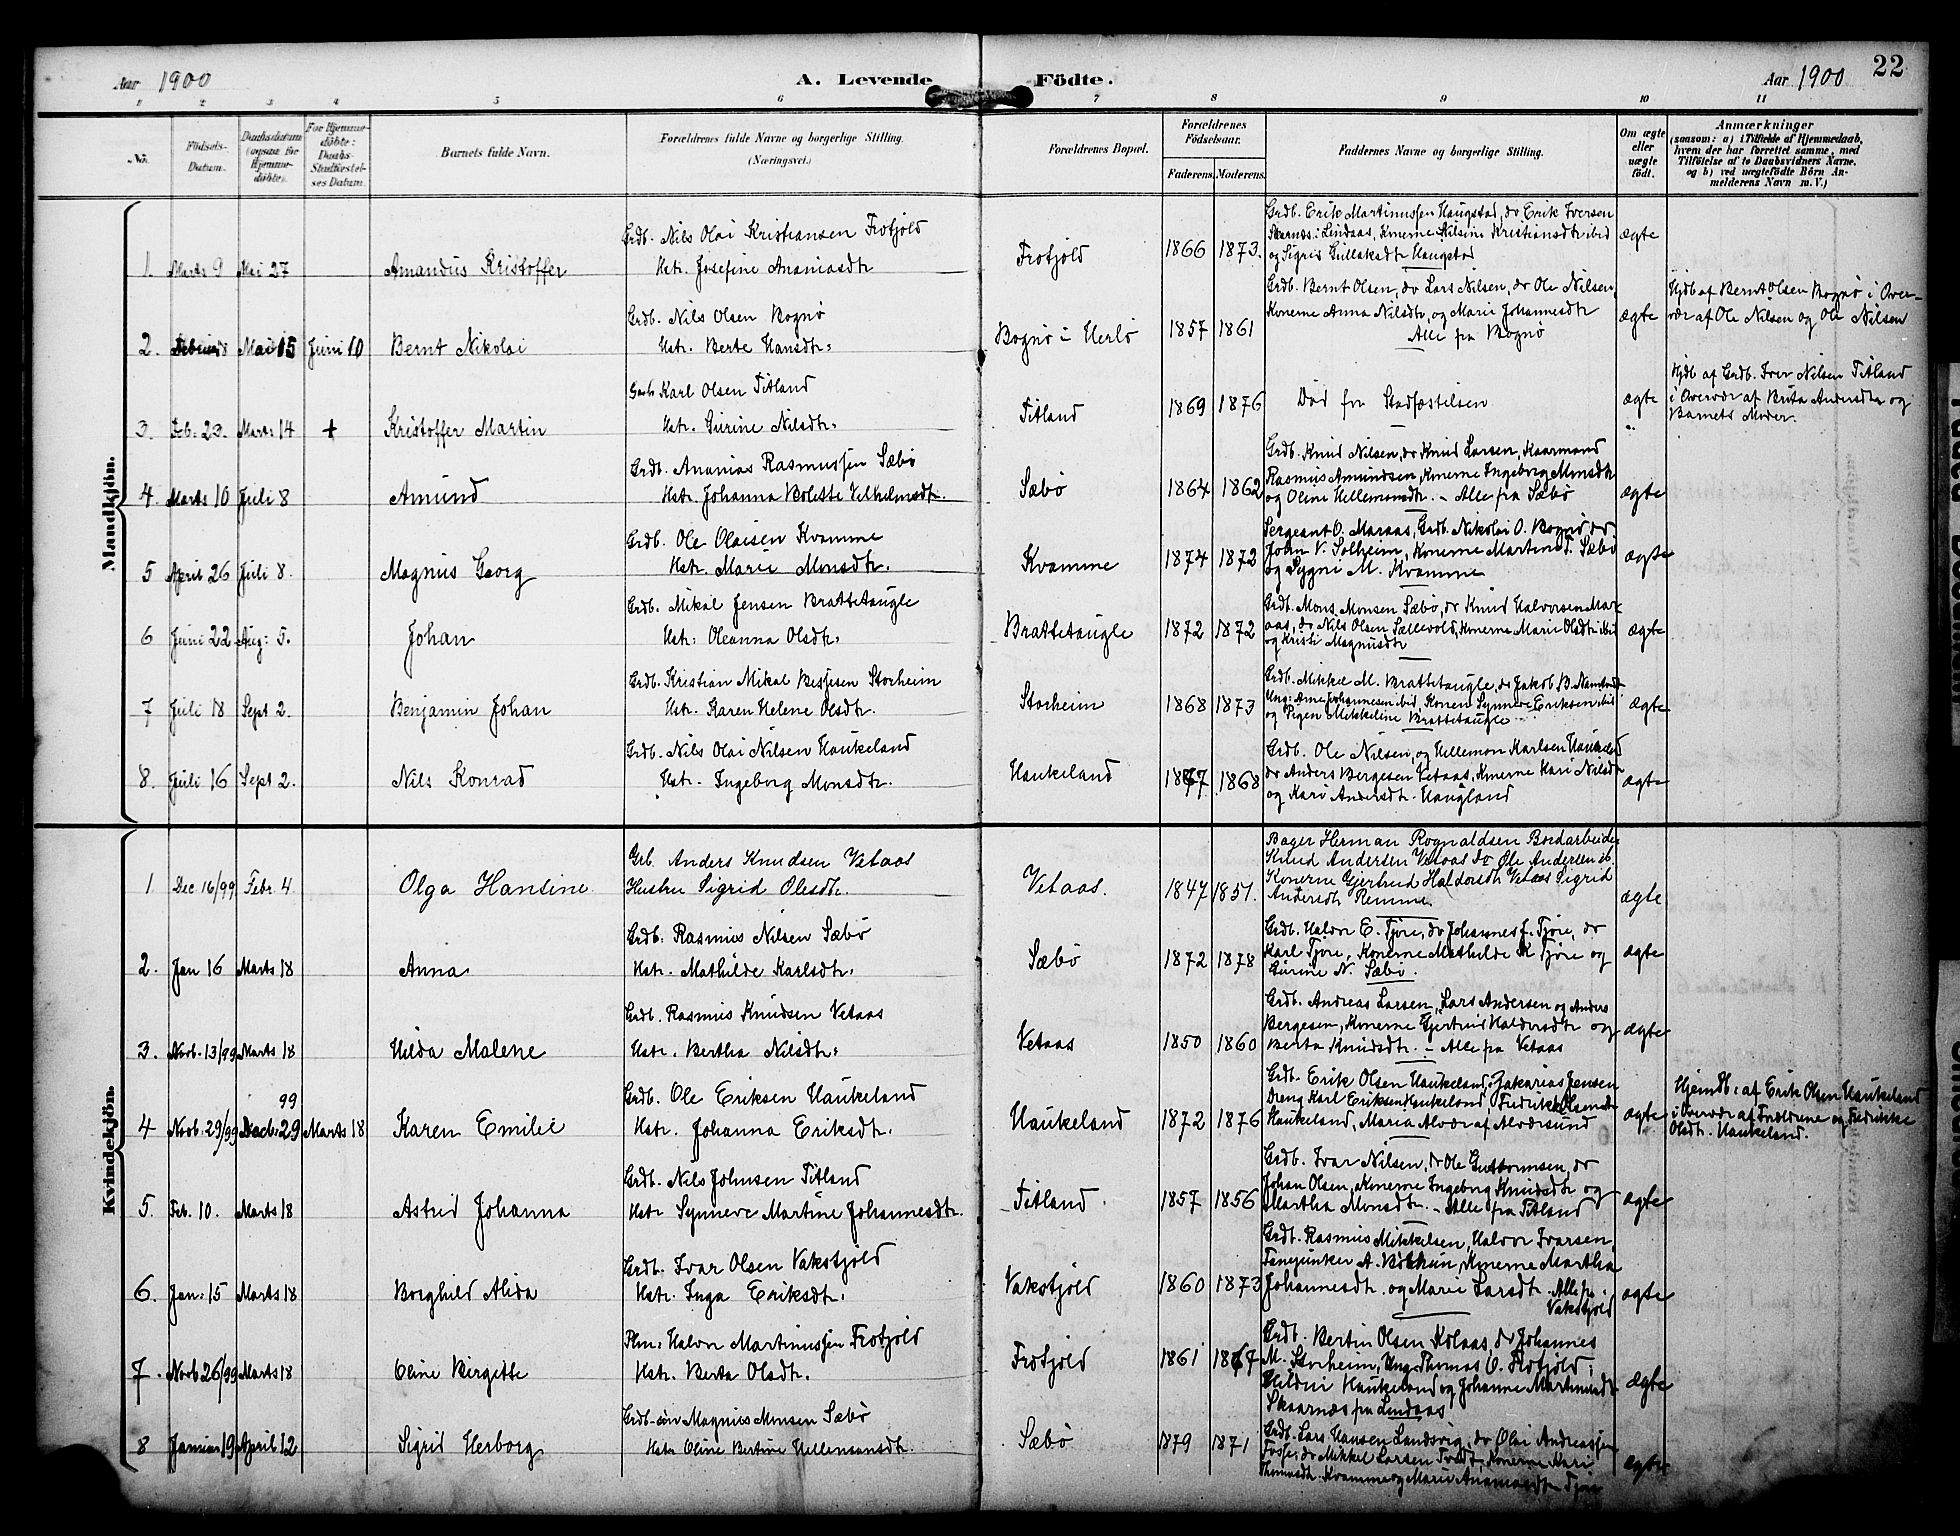 22
Aar 1900
A. Levende Födte.
Aar 1900
1 2 3 4 5 6 7 8 9 10 11
No.
Födsels-
Datum.
Daabsdatum
(ogsaa for
Hjemme-
döbte).
For Hjemme-
döbte:
Daabs-
Stadfæstel-
ses Datum.
Barnets fulde Navn.
Forældrenes fulde Navne og borgerlige Stilling.
(Næringsvei.)
Forældrenes Bopæl.
Forældrenes
Födselsaar.
Faderens. Moderens.
Faddernes Navne og borgerlige Stilling.
Om ægte
eller
uægte
födt.
Anmærkninger
(saasom: a) i Tilfælde af Hjemmedaab,
hvem der har forrettet samme, med
Tilföielse af to Daabsvidners Navne,
og b) ved uægtefödte Börn An-
melderens Navn m. V.)
Mandkjön.
1. Marts 9 Mai 27 Amandus Kristoffer
Grdb. Nils Olai Kristiansen Frotjold
Hstr. Josefine Ananiasdtr
Frotjold 1866 1873.
Grdb. Erik Martinussen Haugstad, do Erik Iversen
Skarnæs i Lindaas, Konerne Nilsine Kristiansdtr ibid
og Sigrid Gullaksdtr Haugstad
ægte
2. 8 Mai 15 Juni 10 Bernt Nikolai
Grdb. Nils Olsen Bognø
Hstr. Berte Hansdtr.
Bognø i Herlø 1857 1861
Grdb. Bernt Olsen, do Lars Nilsen, do Ole Nilsen,
Konerne Anna Nilsdtr, og Marie Johannesdtr
Alle fra Bognø
ægte
Hjdb af Bernt Olsen Bognø i Over-
vær af Ole Nilsen og Ole Nilsen
3. Feb. 23. Marts 14 + Kristoffer Martin
Karl Olsen Titland
Hstr. Gurine Nilsdtr.
Titland 1869 1876
Død før Stadfæstelsen
ægte
Hjdb af Grdb. Iver Nilsen Titland
i Overvær af Brita Andersdtr og
Barnets Moder.
4 Marts 10 Juli 8 Amund
Grdb. Ananias Rasmussen Sæbø
Hstr. Johanna Bolette Vilhelmsdtr.
Sæbø 1864 1862
Grdb. Knud Nilsen, do Knud Larsen, Kaarmand
Rasmus Amundsen, Konerne Ingeborg Monsdtr
og Oline Hellemonsdtr. – Alle fra Sæbø
ægte
5 April 26 Juli 8. Magnus Georg
Grdb. Ole Olaisen Kvamme
Hstr. Marie Monsdtr.
Kvamme 1874 1872
Sergeant O. Maraas, Grdb. Nikolai O. Bognø, do
John V. Solheim, Konerne Martine T. Sæbø
og Sygni M. Kvamme
ægte
6 Juni 22 Aug: 5. Johan
Grdb. Mikal Jensen Brattetaugle
Hstr: Oleanna Olsdtr.
Brattetaugle 1872 1872
Grdb. Mons Monsen Sæbø, do Knud Halvorsen Mar-
aas, do Nils Olsen Sellevold, Konerne Marie Olsdtr ibid
og Kristi Magnusdtr
ægte
7 Juli 18 Sept 2. Benjamin Johan
Grdb. Kristian Mikal Bessesen Storheim
Hstr. Karen Helene Olsdtr.
Storheim 1868 1873
Grdb. Mikkel M. Brattetaugle, do Jakob B.
Ung: Arne Johannesen ibid, Konen Synneve Eriksen ibid
og Pigen Mikkeline Brattetaugle
ægte
8. Juli 16 Sept 2. Nils Konrad
Grdb. Nils Olai Nilsen Haukeland
Hstr. Ingeborg Monsdtr.
Haukeland 1868
Grdb. Ole Nilsen, og Hellemon Karlsen Haukeland
do Anders Bergesen Vetaas, Konerne Kari Nilsdtr
og Kari Andersdtr. Haugland
ægte
Kvindekjön.
1 Dec. 16/99 Febr. 4. Olga Hansine
Grb. Anders Knudsen Vetaas
Hustru Sigrid Olesdtr.
Vetaas. 1847 1851.
Bager Herman Rognaldsen Bordarbeider
Knud Andersen Vetaas do Ole Andersen ib.
Konerne Gjertrud Haldorsdtr Vetaas Sigrid
Andersdtr Remme.
ægte
2. Jan 16 Marts 18 Anna
Grdb. Rasmus Nilsen Sæbø
Hstr. Mathilde Karlsdtr.
Sæbø 1872 1878
Grdb. Halvor E. Tjore, do Johannes J. Tjore, do
Karl Tjore, Konerne Mathilde K Tjore og
Gurine N. Sæbø.
ægte
3. Novb. 13/99 Marts 18 Hilda Malene
Grdb. Rasmus Knudsen Vetaas
Hstr. Bertha Nilsdtr.
Vetaas 1850 1860
Grdb. Andreas Larsen, Lars Andersen og Anders
Bergesen, Konerne Gjertrud Haldorsdtr og
Berta Knudsdtr. – Alle fra Vetaas
ægte
99
4 Novb. 29/99 Decb. 29 Marts 18 Karen Emilie
Grdb. Ole Eriksen Haukeland
Hstr. Johanna Eriksdtr.
Haukeland 1872 1876
Grdb. Erik Olsen Haukeland, Zakarias Jensen
Dreng Karl Eriksen Haukeland, Fredrikke Olsendtr
Haukeland, Maria Alvær af Alværsund
ægte
Hjemdb. af Erik Olsen Haukeland
i Overvær af Forældrene og Fredrikke
Olsdtr. Haukeland.
5. Feb. 10. Marts 18 Astrid Johanna
Grdb. Nils Johnsen Titland
Hstr Synneve Martine Johannesdtr.
Titland 1857 1856
Grdb. Ivar Nilsen, do Ole Guttormsen, do
Johan Olsen, Konerne Ingeborg Knudsdtr og
Martha Monsdtr. – Alle fra Titland
ægte
6. Jan: 15 Marts 18 Borghild Alida
Grdb. Ivar Olsen Vakstjold
Hstr. Inga Eriksdtr.
Vakstjold 1860 1873
Grdb. Rasmus Mikkelsen, Halvor Ivarsen,
Fanejunker A. Kvamme, Konerne Martha
Johannesdtr. og Marie Larsdtr. Alle fra
Vakstjold
ægte
7. Novb 26/99 Marts 18 Oline Birgitte
Plm: Halvor Martinussen Frotjold
Hstr. Berta Olsdtr.
Frotjold 1861
Grdb. Bertin Olsen Kolaas, do Johannes
M. Storheim, Ung: Thomas O. Frotjold;
Haukeland og Johanne Martinusdtr
Skaarnæs fra Lindaas
ægte
8 Januar 19 April 12 Sigrid Herborg
Grdb-søn Magnus Monsen Sæbø
Hstr Oline Bertine Hellemonsdtr.
Sæbø 1879 1871
Grdb. Lars Hansen Landsvig, do Olai Andreassen
Fosse, do Mikkel Larsen Tvedt, Konerne Kari
Thomasdtr. Kvamme og Marie Ananiasdtr Tjore
ægte